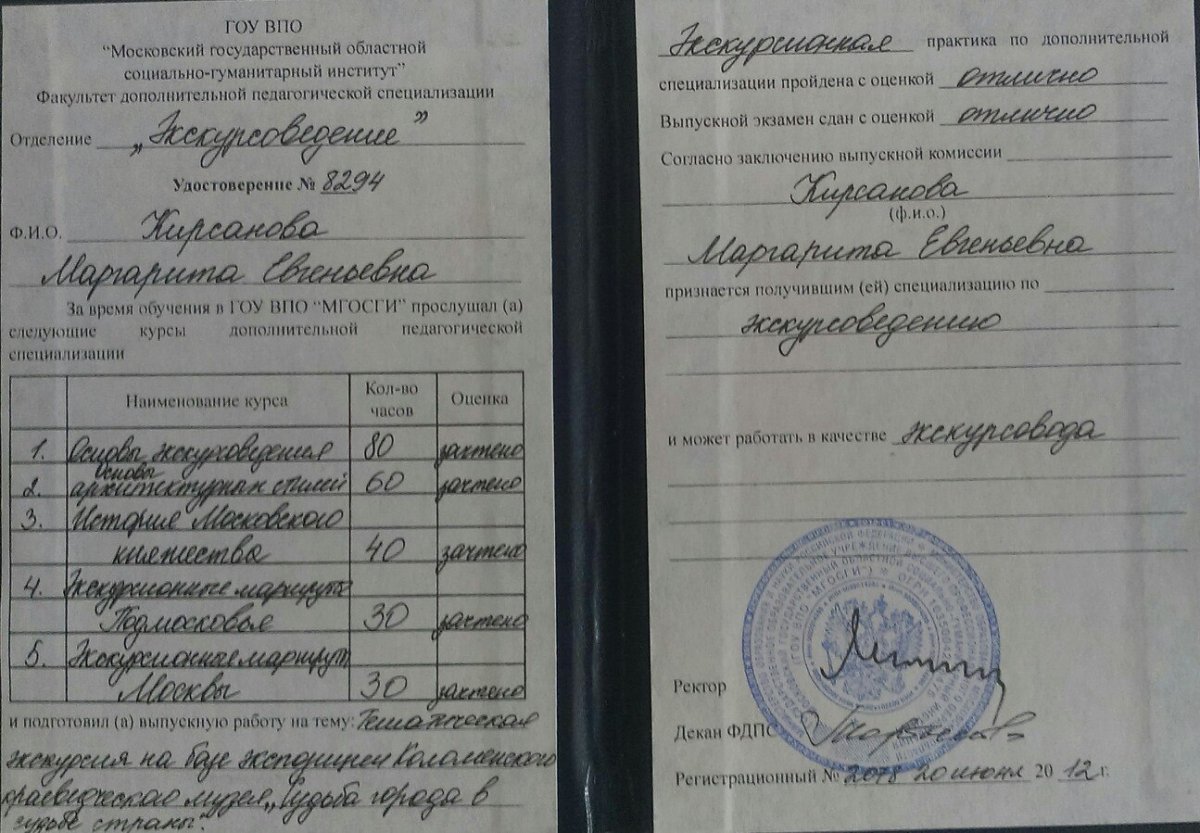 ГОУ ВПО
“Московский государственный областной
социально-гуманитарный институт”
Факультет дополнительной педагогической специализации
Отделение „Экскурсоведение”
Удостоверение № 8294
Ф.И.О. Кирсанова
Маргарита Евгеньевна
За время обучения в ГОУ ВПО “МГОСГИ” прослушал (а)
следующие курсы дополнительной педагогической
специализации
Наименование курса Кол-во часов Оценка
1. Основы экскурсоведения 80 зачтено
2. Основы архитектурных стилей 60 зачтено
3. История Московского
княжества 40 зачтено
4. Экскурсионные маршруты
Подмосковья 30 зачтено
5. Экскурсионные маршруты
Москвы 30 зачтено
и подготовил (а) выпускную работу на тему: Тематическая
экскурсия на базе экспозиции Коломенского
краеведческого музея „Судьба города в
судьбе страны”.
Экскурсионная практика по дополнительной
специализации пройдена с оценкой отлично
Выпускной экзамен сдан с оценкой отлично
Согласно заключению выпускной комиссии
Кирсанова
(ф.и.о.)
Маргарита Евгеньевна
признается получившим (ей) специализацию по
экскурсоведению
и может работать в качестве экскурсовода
Ректор
Декан ФДПС
Регистрационный № 2078 20 июня 2012 г.